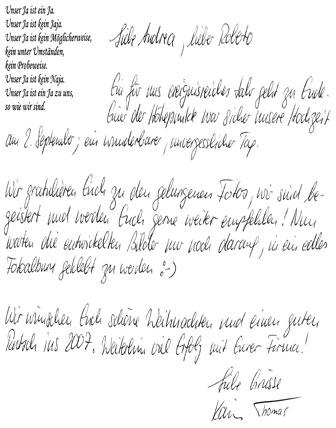 Unser Ja ist ein Ja.
Unser Ja ist kein Jaja.
Unser Ja ist kein Möglicherweise,
kein unter Umständen,
kein Probeweise.
Unser Ja ist kein Naja.
Unser Ja ist ein Ja zu uns,
so wie wir sind.
Liebe Andrea, lieber Roberto
Ein für uns ereignisreiches Jahr geht zu Ende.
Einer der Höhepunkte war sicher unsere Hochzeit
am 2. September; ein wunderbarer, unvergesslicher Tag.
Wir gratulieren Euch zu den gelungenen Fotos, wir sind be-
geistert und werden Euch gerne weiter empfehlen! Nun
warten die entwickelten Bilder nur noch darauf, in ein edles
Fotoalbum geklebt zu werden :-)
Wir wünschen Euch schöne Weihnachten und einen guten
Rutsch ins 2007. Weiterhin viel Erfolg mit Eurer Firma!
Liebe Grüsse
Karin Thomas